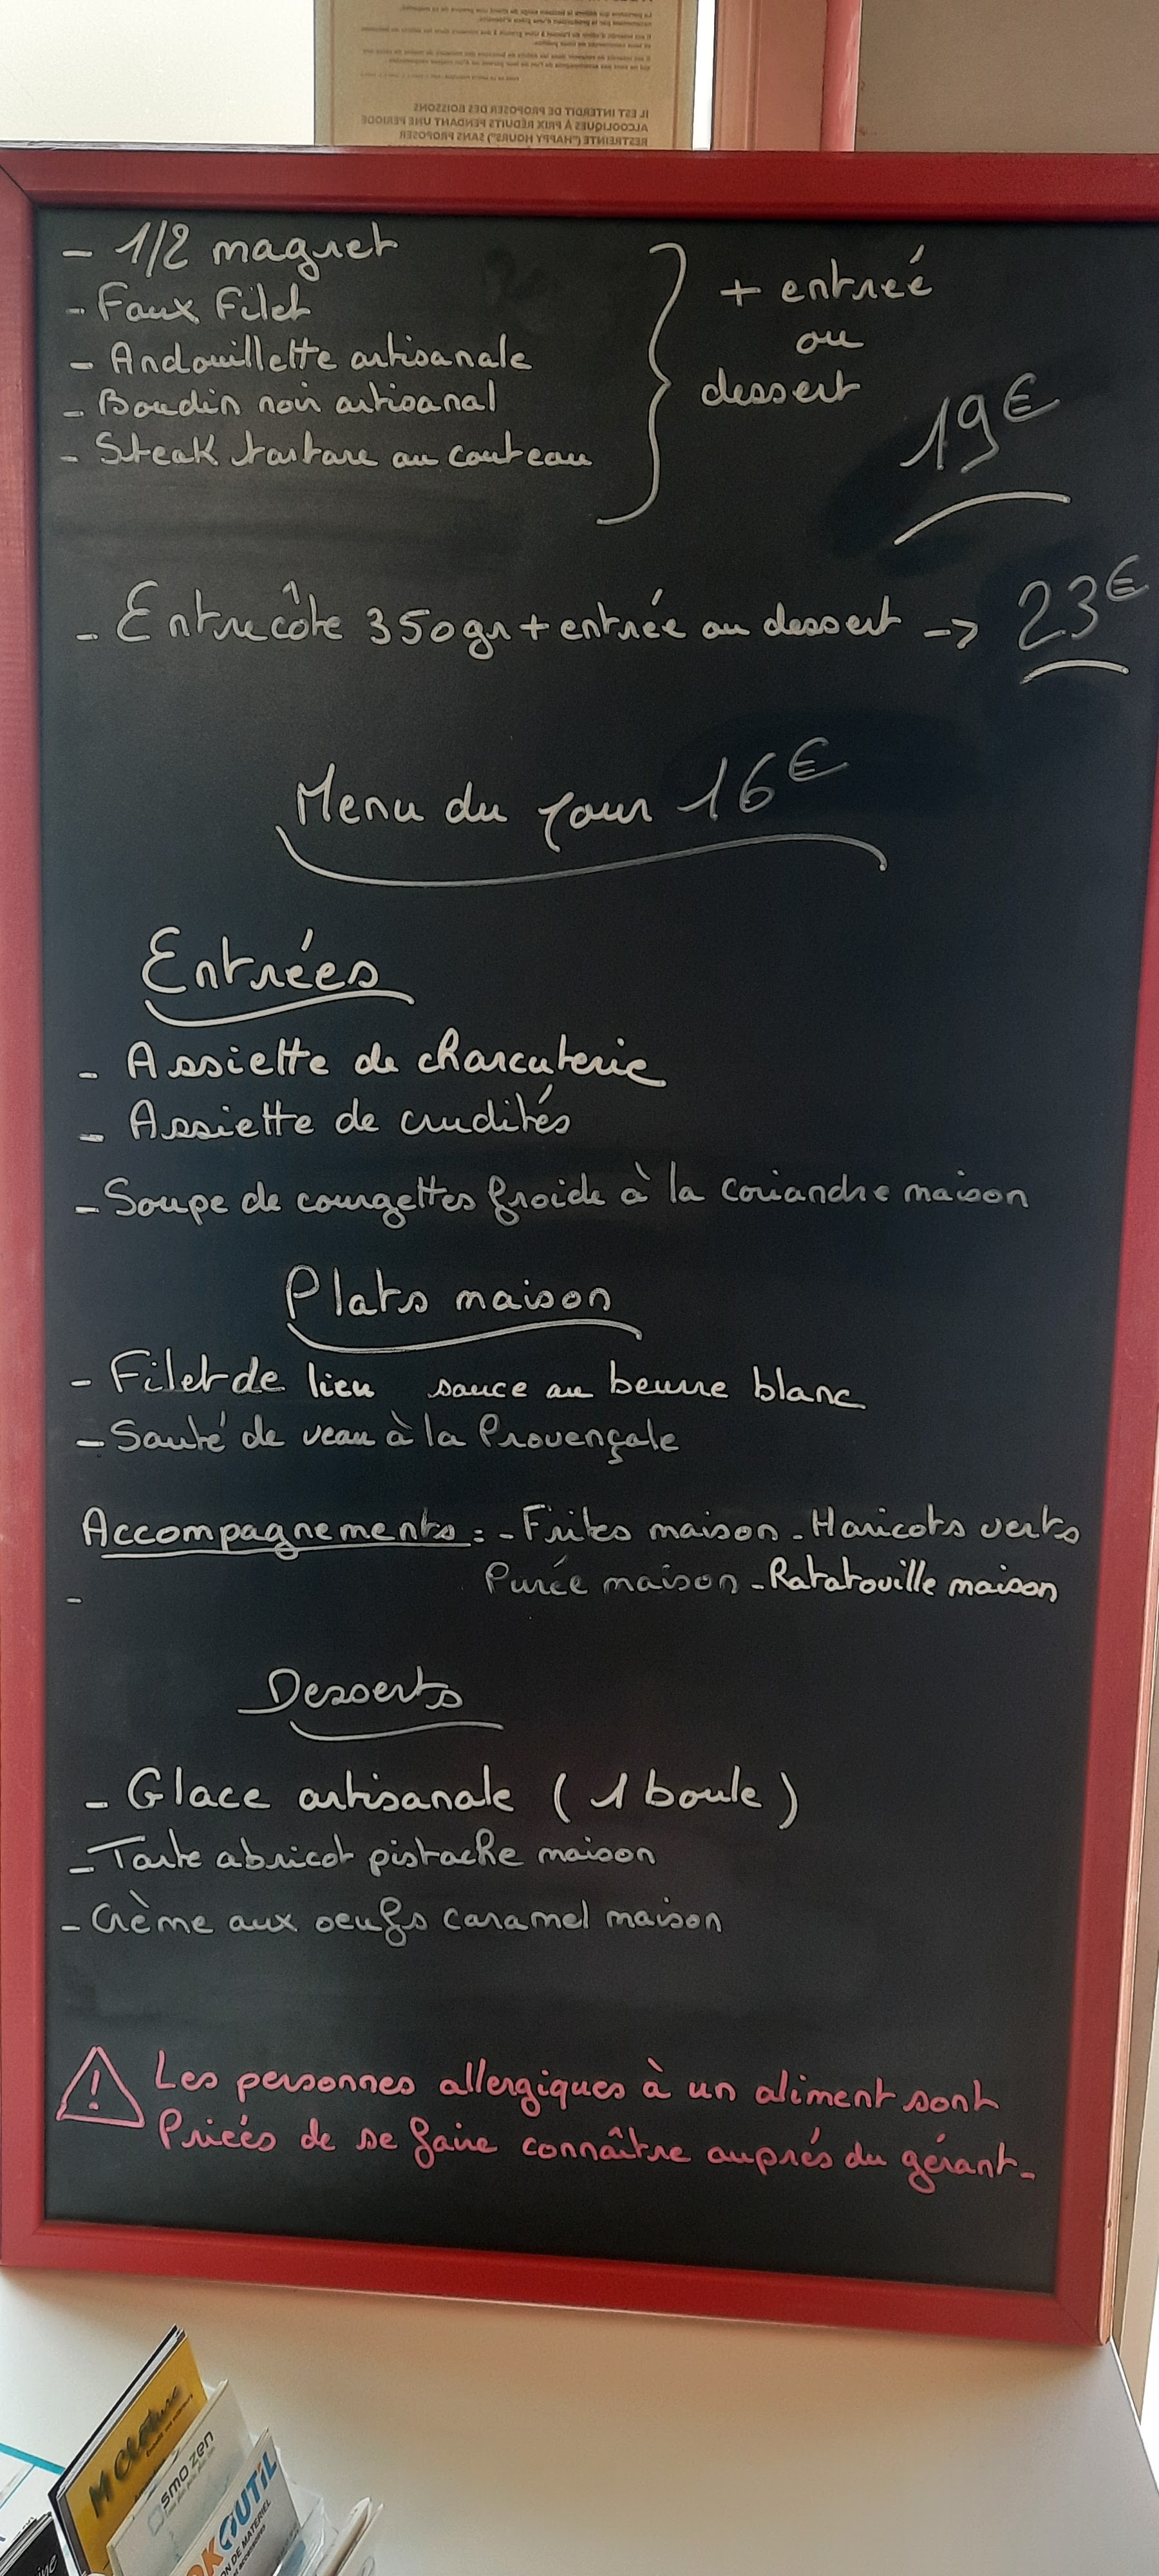 IL EST INTERDIT DE PROPOSER DES BOISSONS
ALCOOLIQUES À PRIX RÉDUITS PENDANT UNE PÉRIODE
RESTREINTE ("HAPPY HOURS") SANS PROPOSER
- 1/2 magret
- Faux Filet
- Andouillette artisanale
- Boudin noir artisanal
- Steak tartare au couteau
+ entreé
ou
dessert
19€
- Entrecôte 350gr + entrée ou dessert -> 23€
Menu du jour 16€
Entrées
- Assiette de charcuterie
- Assiette de crudités
- Soupe de courgettes froide à la coriandre maison
Plats maison
- Filet de lieu sauce au beurre blanc
- Sauté de veau à la Provençale
Accompagnements : - Frites maison - Haricots verts
Purée maison - Ratatouille maison
-
Desserts
- Glace artisanale (1 boule)
- Tarte abricot pistache maison
- Crème aux oeufs caramel maison
Les personnes allergiques à un aliment sont
Priées de se faire connaître auprés du gérant.
smo zen
OUTIL
ON DE MATERIEL